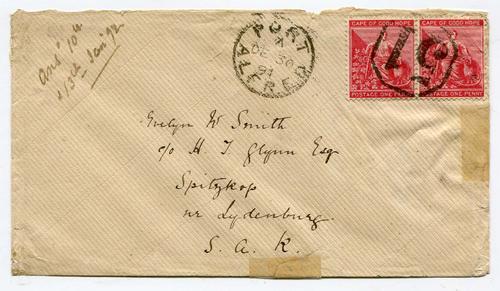 Ans? 10th
& 13th Jan'y 92
PORT
A
DE 30
91
ALFRED
CAPE OF GOOD HOPE CAPE OF GOOD HOPE
1
POSTAGE ONE PENNY POSTAGE ONE PENNY
Evelyn W Smith
c/o H. T. Glynn Esq
Spitzkop
nr Lydenburg.
S. A. R.